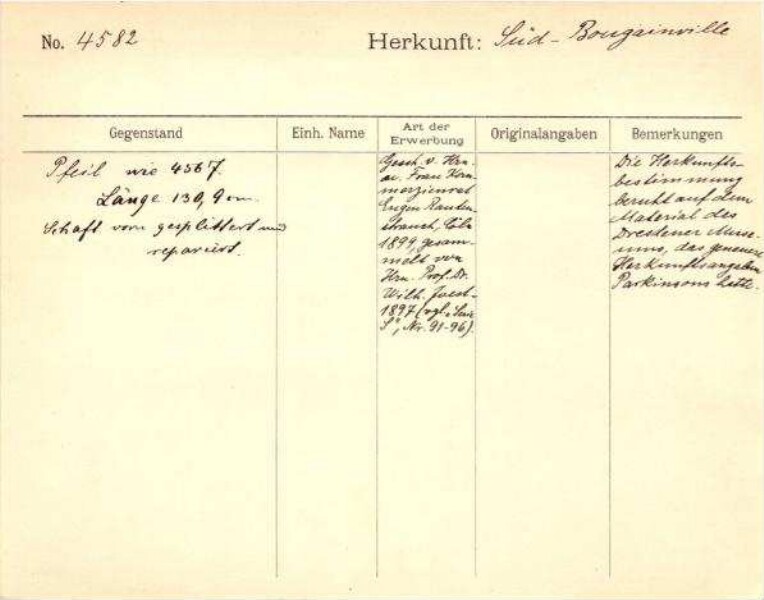 No. 4582
Herkunft: Süd-Bougainville
Gegenstand
Einh. Name
Art der
Erwerbung
Originalangaben
Bemerkungen
Pfeil wie 4567.
Länge 130,9 cm.
Schaft vorn gesplittert und
repariert.
Gesch. v. Hrn.
u. Frau Kom-
merzienrat
Eugen Rauten-
strauch, Cöln
1899, gesam-
melt von
Hrn. Prof. Dr.
Wilh. Joest
1897 (vgl. „Serie
S", Nr. 91-96).
Die Herkunfts-
bestimmung
beruht auf dem
Material des
Dresdener Muse-
ums, das genauere
Herkunftsangaben
Parkinsons hatte.